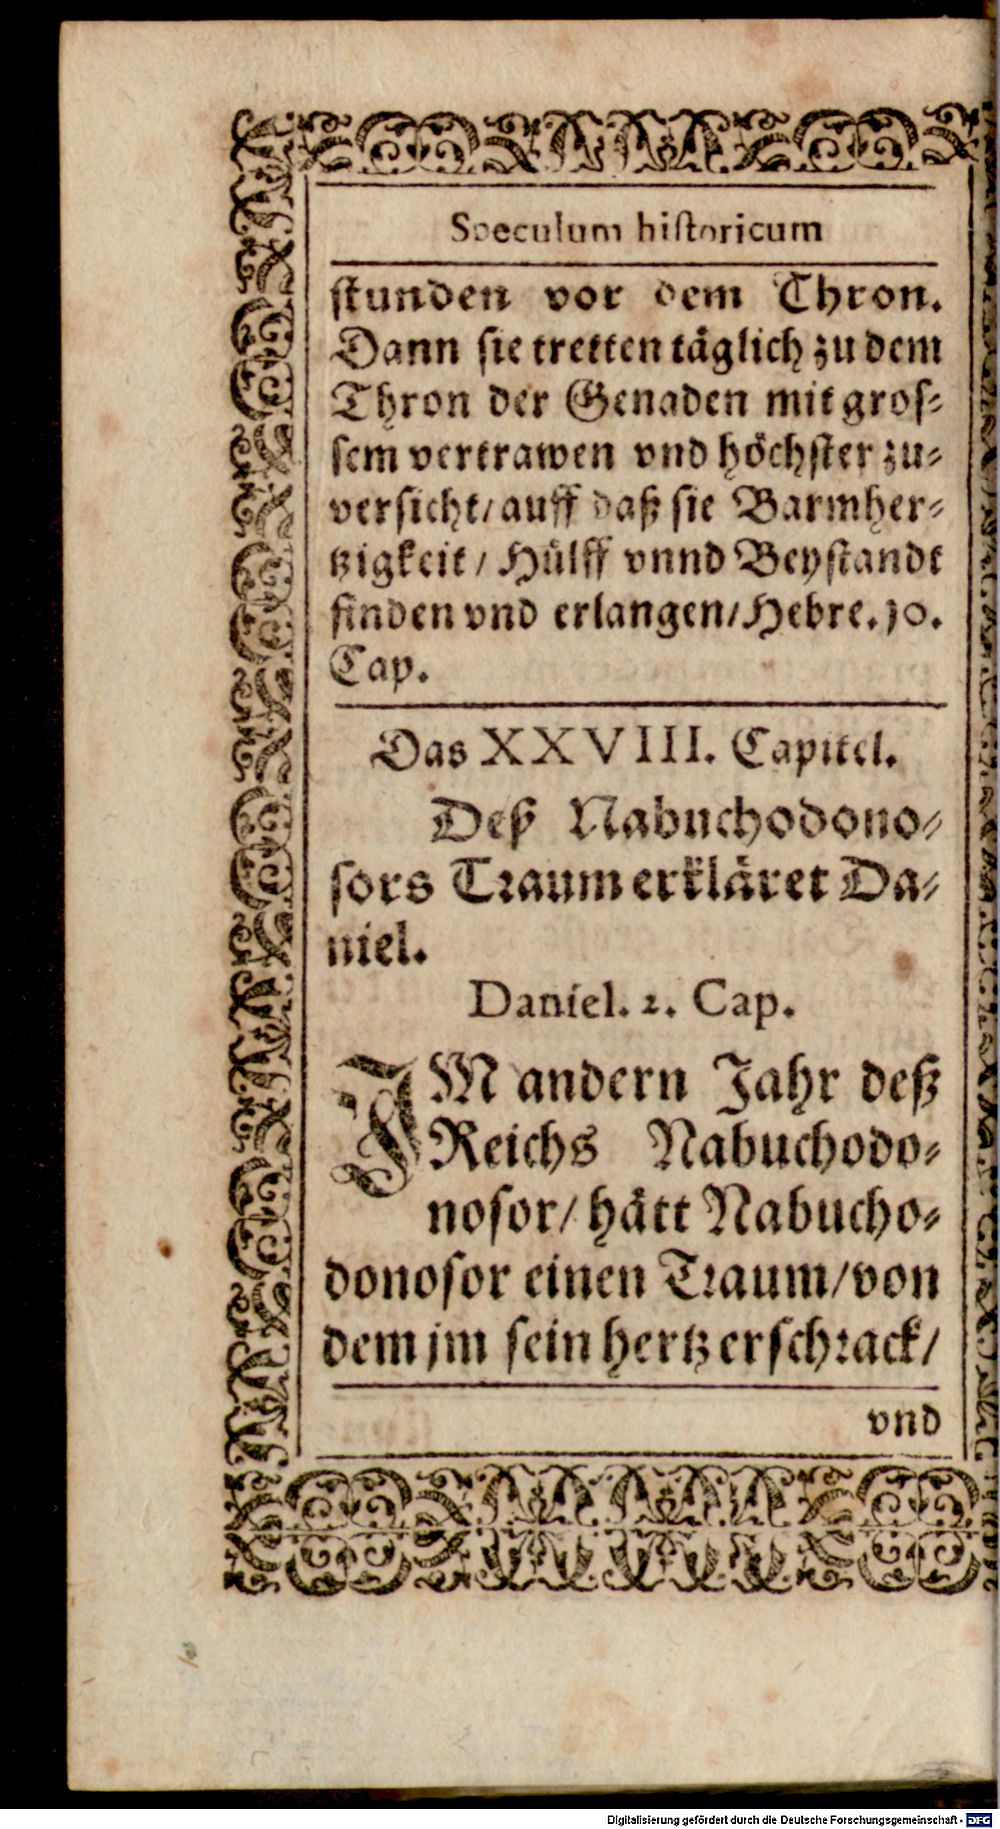 Speculum historicum
stunden vor dem Thron.
Dann sie tretten täglich zu dem
Thron der Genaden mit gros-
sem vertrawen vnd höchster zu-
versicht/ auff daß sie Barmher-
tzigkeit/ Hülff vnnd Beystandt
finden vnd erlangen/ Hebre. 10.
Cap.
Das XXVIII. Capitel.
Deß Nabuchodono-
sors Traum erkläret Da-
niel.
Daniel. 2. Cap.
IM andern Jahr deß
Reichs Nabuchodo-
nosor/ hätt Nabucho-
donosor einen Traum/ von
dem jm sein hertz erschrack/
vnd
Digitalisierung gefördert durch die Deutsche Forschungsgemeinschaft - DFG